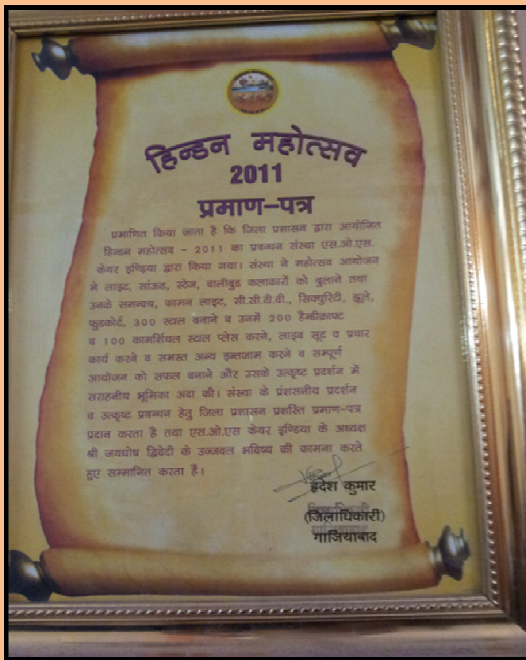 हिन्डन महोत्सव
2011
प्रमाण-पत्र
प्रमाणित किया जाता है कि जिला प्रशासन द्वारा आयोजित
हिन्डन महोत्सव - 2011 का प्रबन्धन संस्था एस.ओ.एस.
केयर इण्डिया द्वारा किया गया। संस्था ने महोत्सव आयोजन
मे लाइट, सांऊड, स्टेज, बालीवुड कलाकारों को बुलाने तथा
उनके समन्वय, कामन लाइट, सी.सी.टी.वी., सिक्युरिटी, झूले,
फुडकोर्ट, 300 स्टाल बनाने व उनमें 200 हैन्डीक्राफ्ट
व 100 कामर्शियल स्टाल प्लेस करने, लाइव सूट व प्रचार
कार्य करने व समस्त अन्य इन्तजाम करने व सम्पूर्ण
आयोजन को सफल बनाने और उसके उत्कृष्ट प्रदर्शन में
सराहनीय भूमिका अदा की। संस्था के प्रंशसनीय प्रदर्शन
व उत्कृष्ट प्रबन्धन हेतु जिला प्रशासन प्रशस्ति प्रमाण-पत्र
प्रदान करता है तथा एस.ओ.एस केयर इण्डिया के अध्यक्ष
श्री जयघोष द्विवेदी के उज्जवल भविष्य की कामना करते
हुए सम्मानित करता है।
हृदेश कुमार
(जिलाधिकारी)
गाजियाबाद